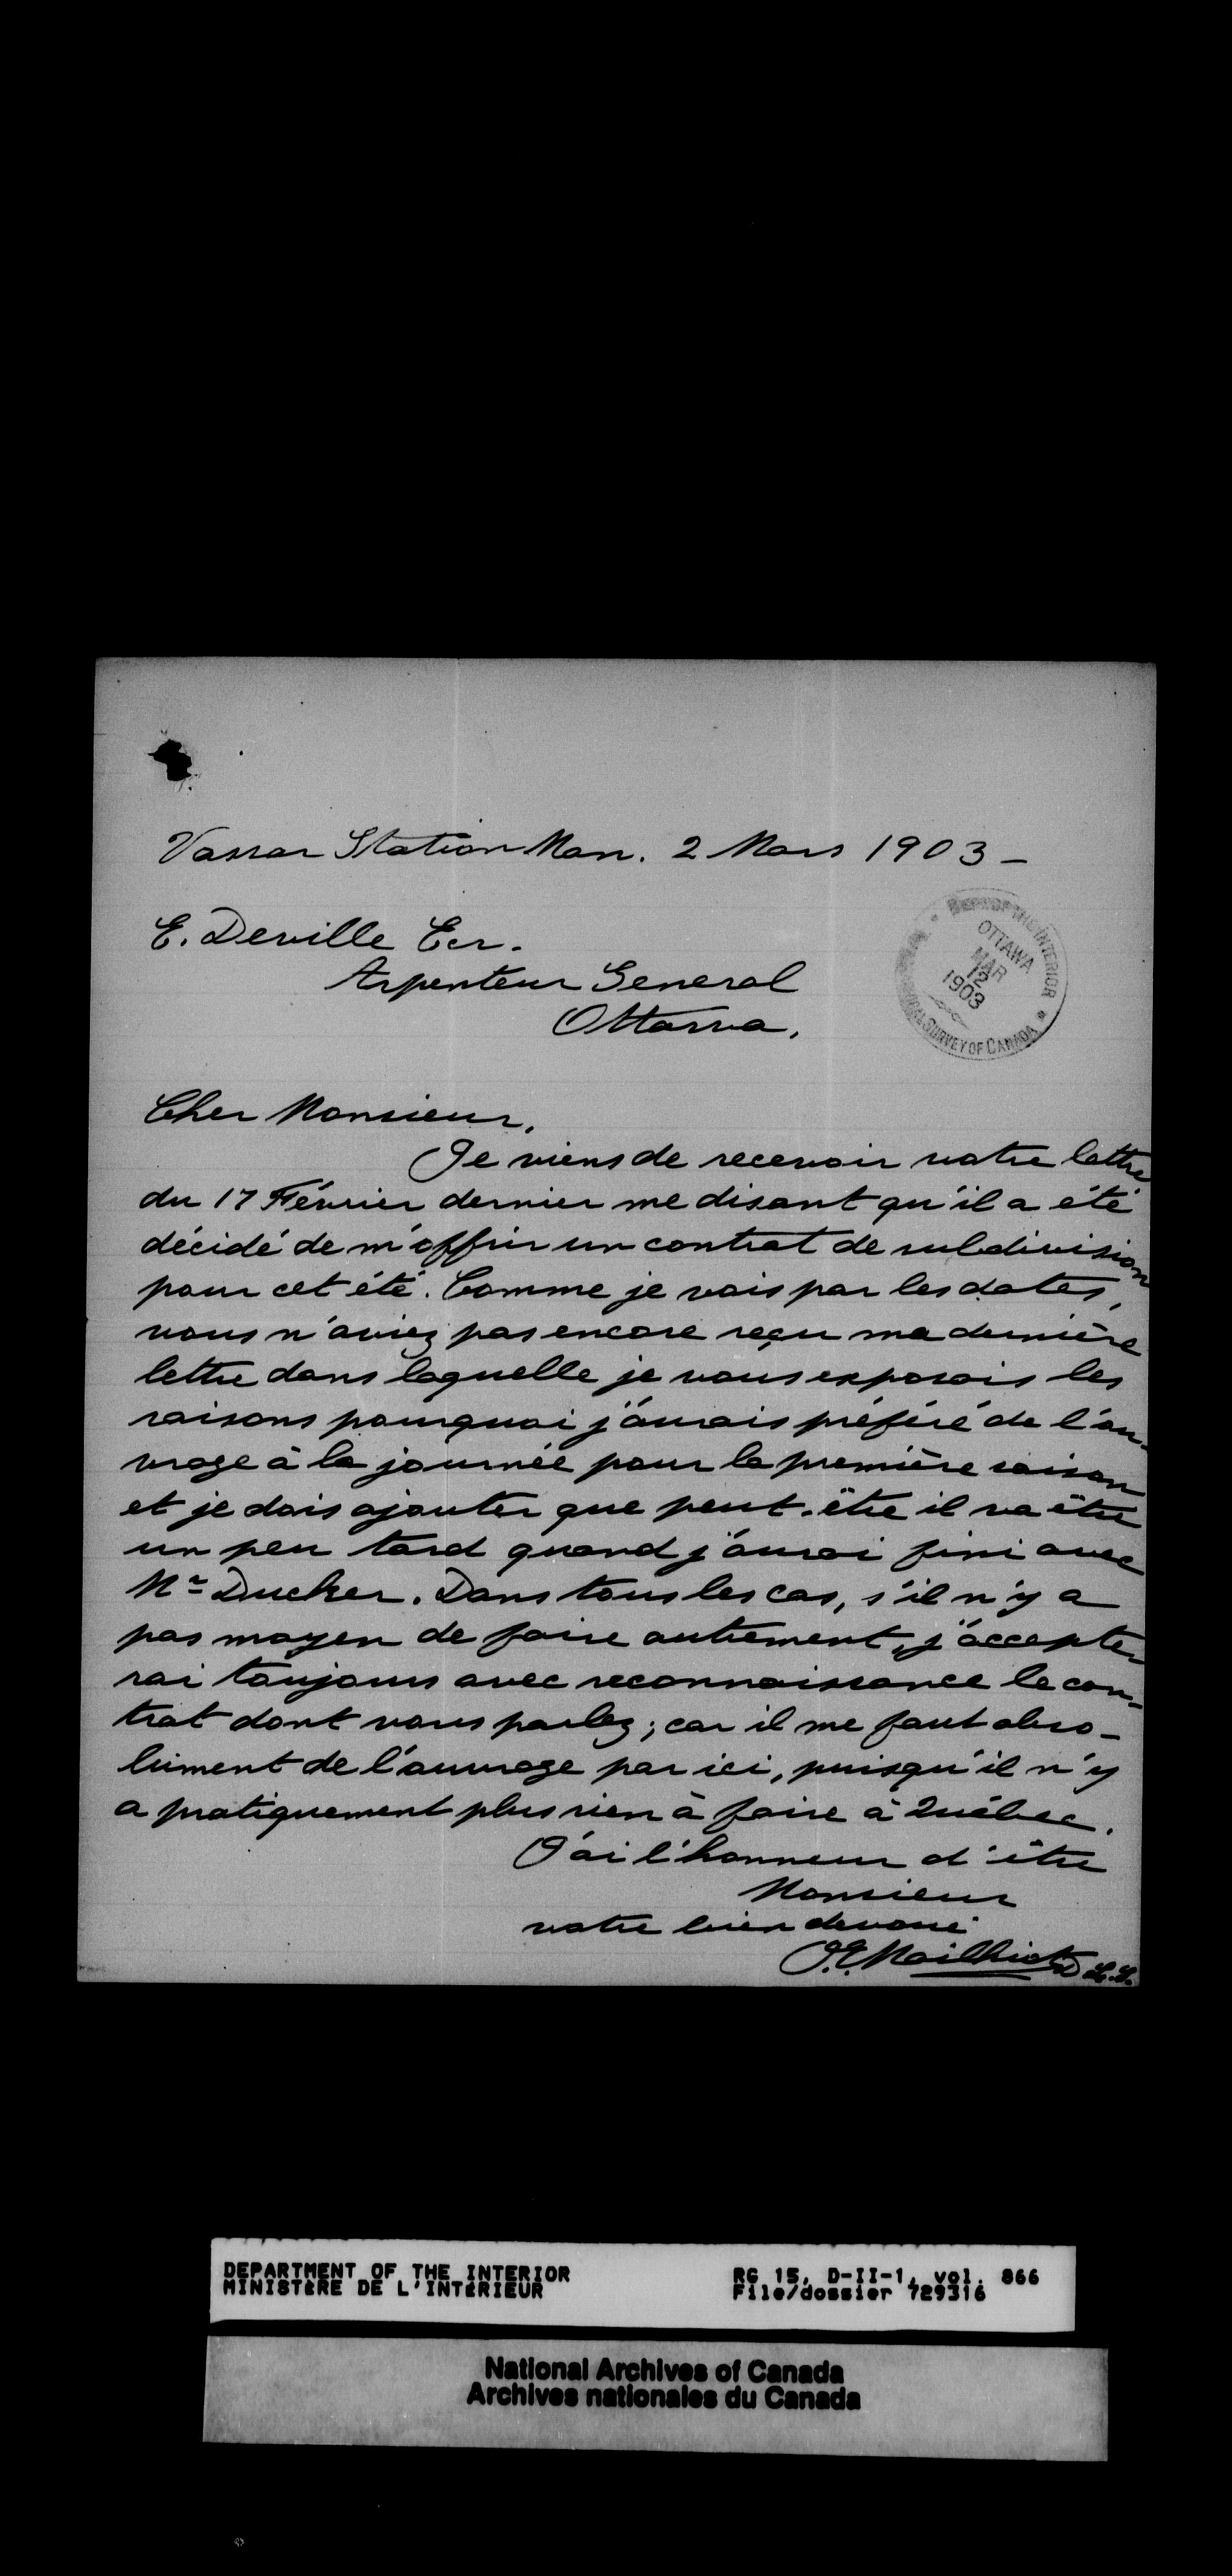 Vassar Station Man. 2 Mars 1903 –
E. Deville Ecr.
Arpenteur General
Ottawa.
DEPT OF THE INTERIOR
OTTAWA
MAR
12
1903
SURVEY OF CANADA
Cher Monsieur,
Je viens de recevoir votre lettre
du 17 Février dernier me disant qu'il a été
décidé de m'offrir un contrat de subdivision
pour cet été. Comme je vois par les dates,
vous n'aviez pas encore reçu ma dernière
lettre dans laquelle je vous exposais les
raisons pourquoi j'aurais préféré de l'ou-
vrage à la journée pour la première saison
et je dois ajouter que peut-être il va être
un peu tard quand j'aurai fini avec
Mr Ducker. Dans tous les cas, s'il n'y a
pas moyen de faire autrement, j'accepte-
rai toujours avec reconnaissance le con-
trat dont vous parlez; car il me faut abso-
lument de l'ouvrage par ici, puisqu'il n'y
a pratiquement plus rien à faire à Québec.
J'ai l'honneur d'être
Monsieur
votre bien devoué
J.E. Mailhiot D.L.S.
DEPARTMENT OF THE INTERIOR
MINISTÈRE DE L'INTÉRIEUR
RG 15, D-II-1, vol. 866
File/dossier 729316
National Archives of Canada
Archives nationales du Canada